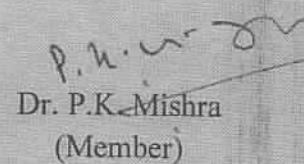 Dr. P.K. Mishra
(Member)